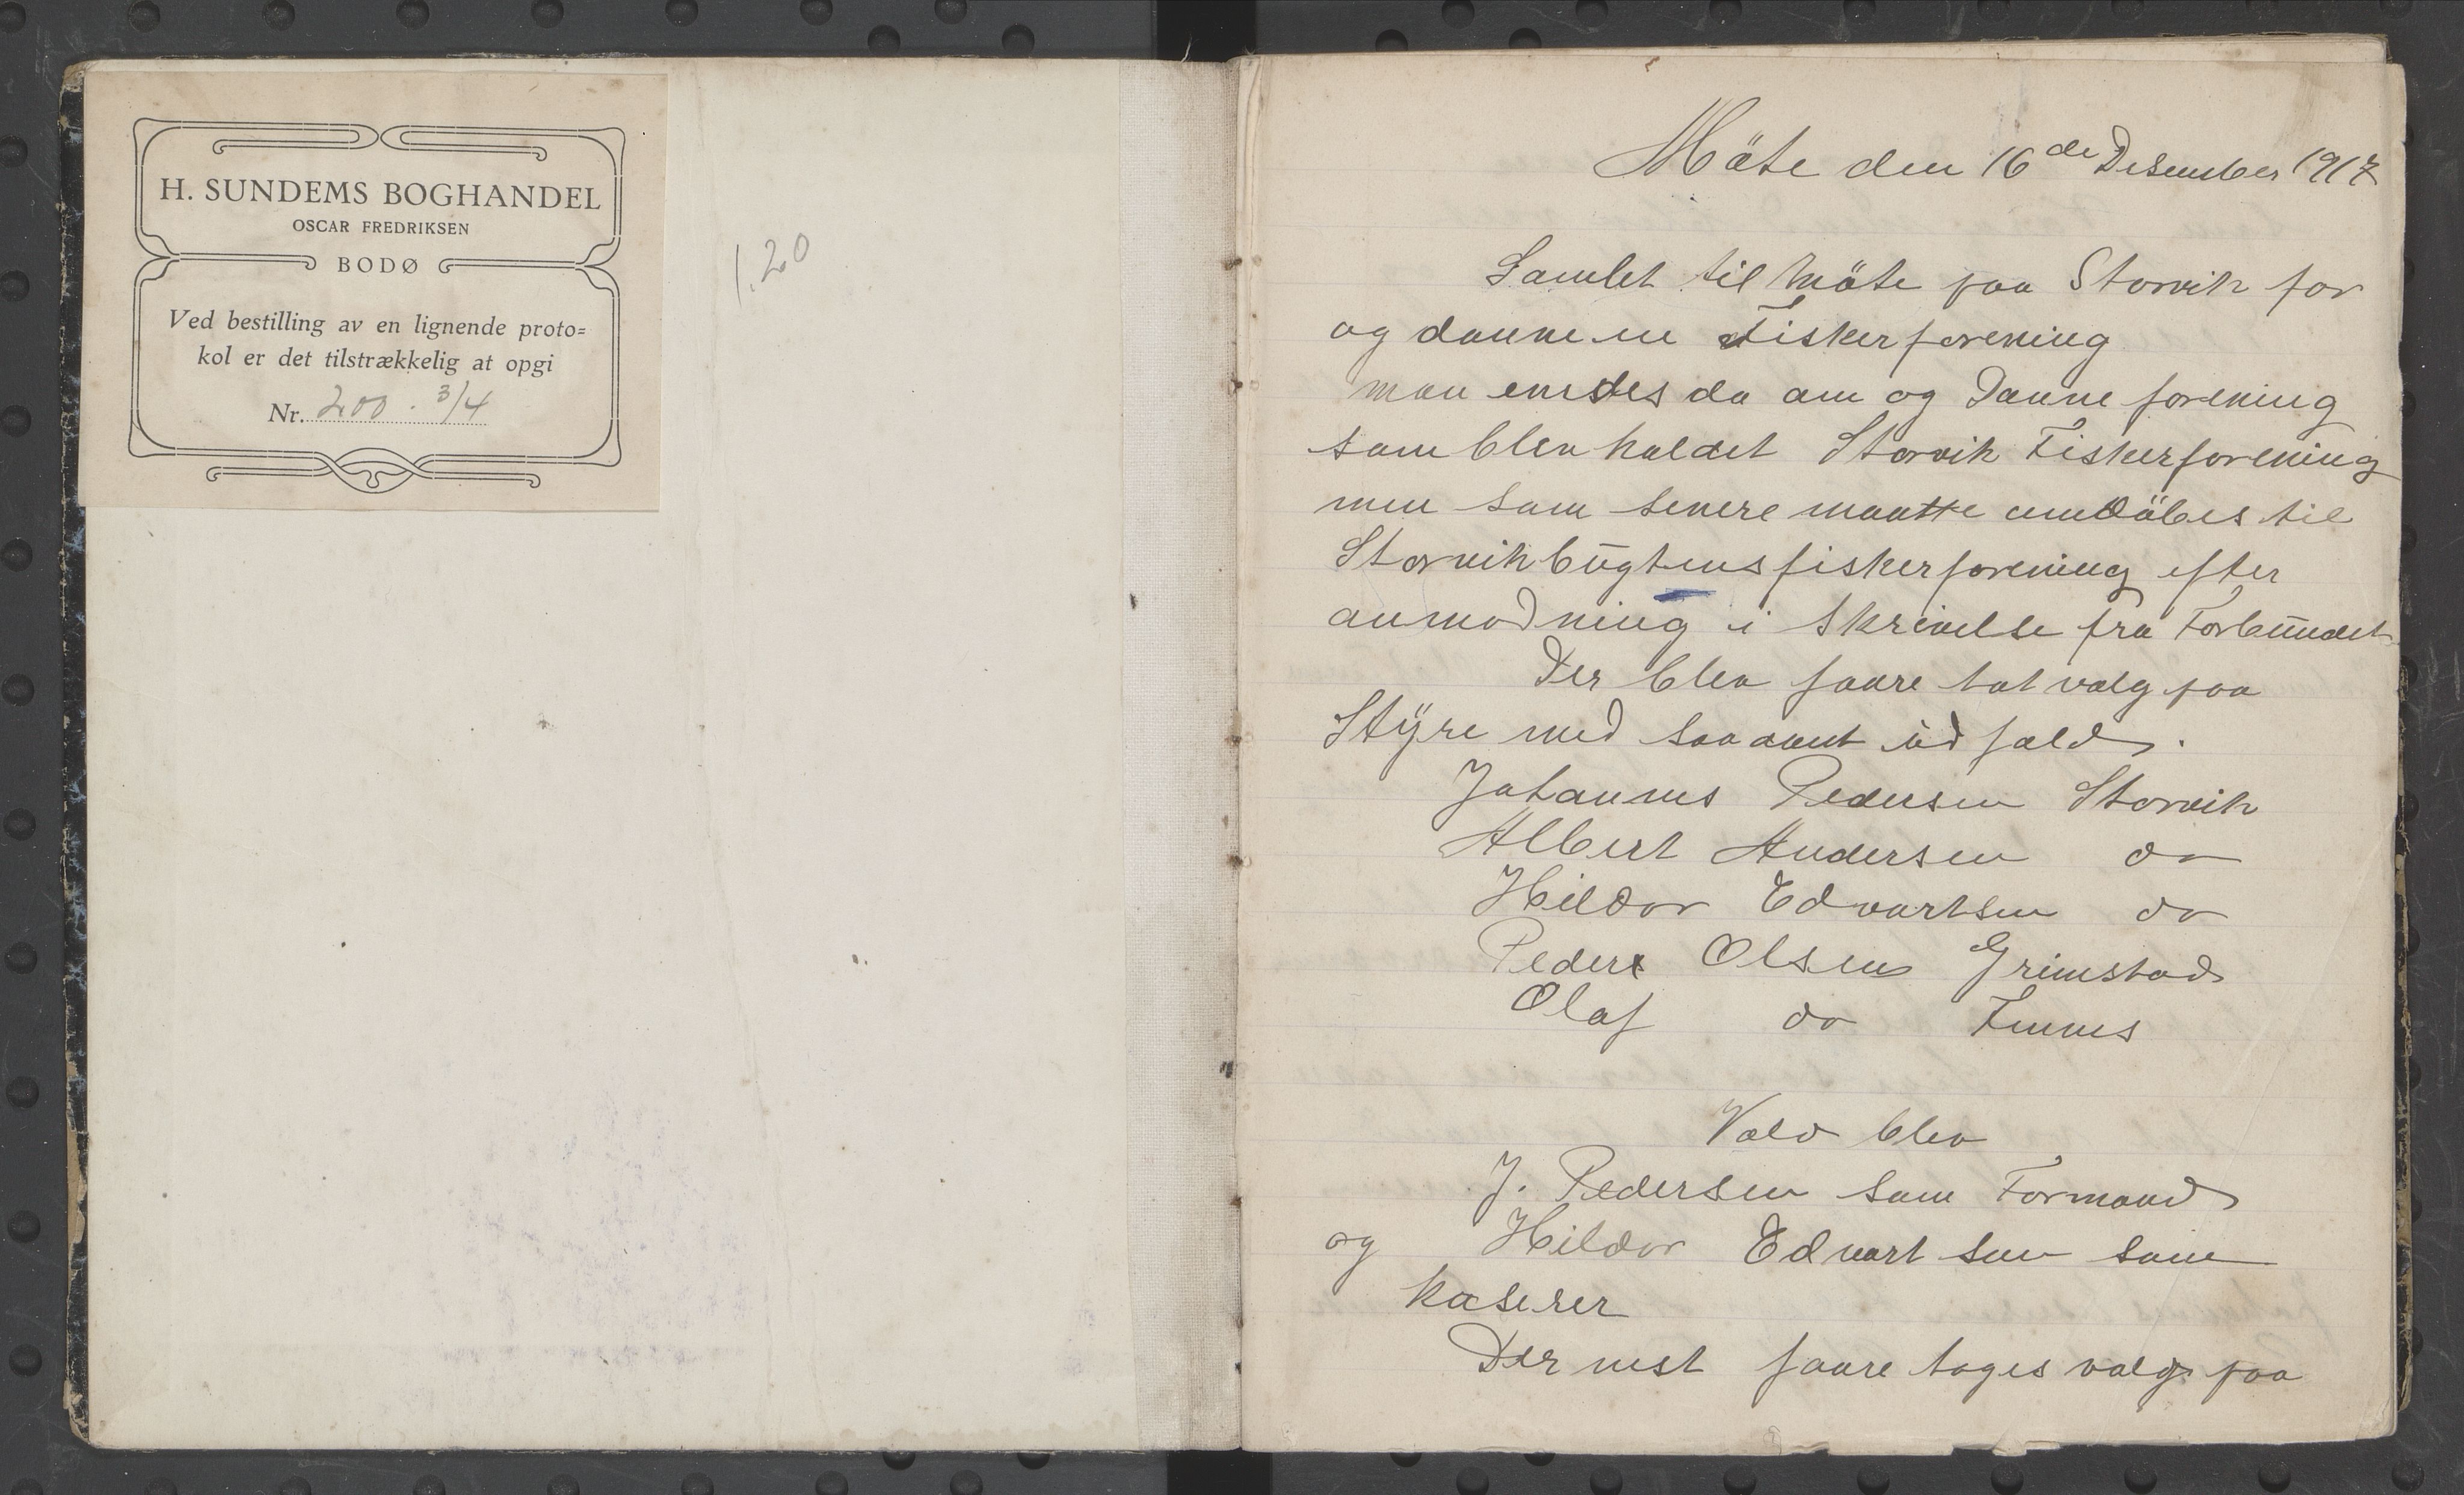 H. SUNDEMS BOGHANDEL
OSCAR FREDRIKSEN
BODØ
Ved bestilling av en lignende proto=
kol er det tilstrækkelig at opgi
Nr. 200. 3/4
1.20
Mäte den 16de Desember 1917
Samlet til Möte paa Storvik for
og danne en Fiskerforening
man enstes da om og Danne forening
som blev kaldet Storvik Fiskerforening
men som senere maatte omdöbes til
Storvikbugtens fiskerforening efter
anmodning i Skrivelse fra Forbundet
Der blev faare tat valg paa
Styre med saa ant udfald.
Johannes Pedersen Storvik
Albert Andersen do
Hildor Edvartsen do
Peder Olsen Grimstad
Olaf do Finnes
Vald blev
J. Pedersen som Formand
og Hildor Edvartsen som
kaserer
Der nest faare toges valg paa